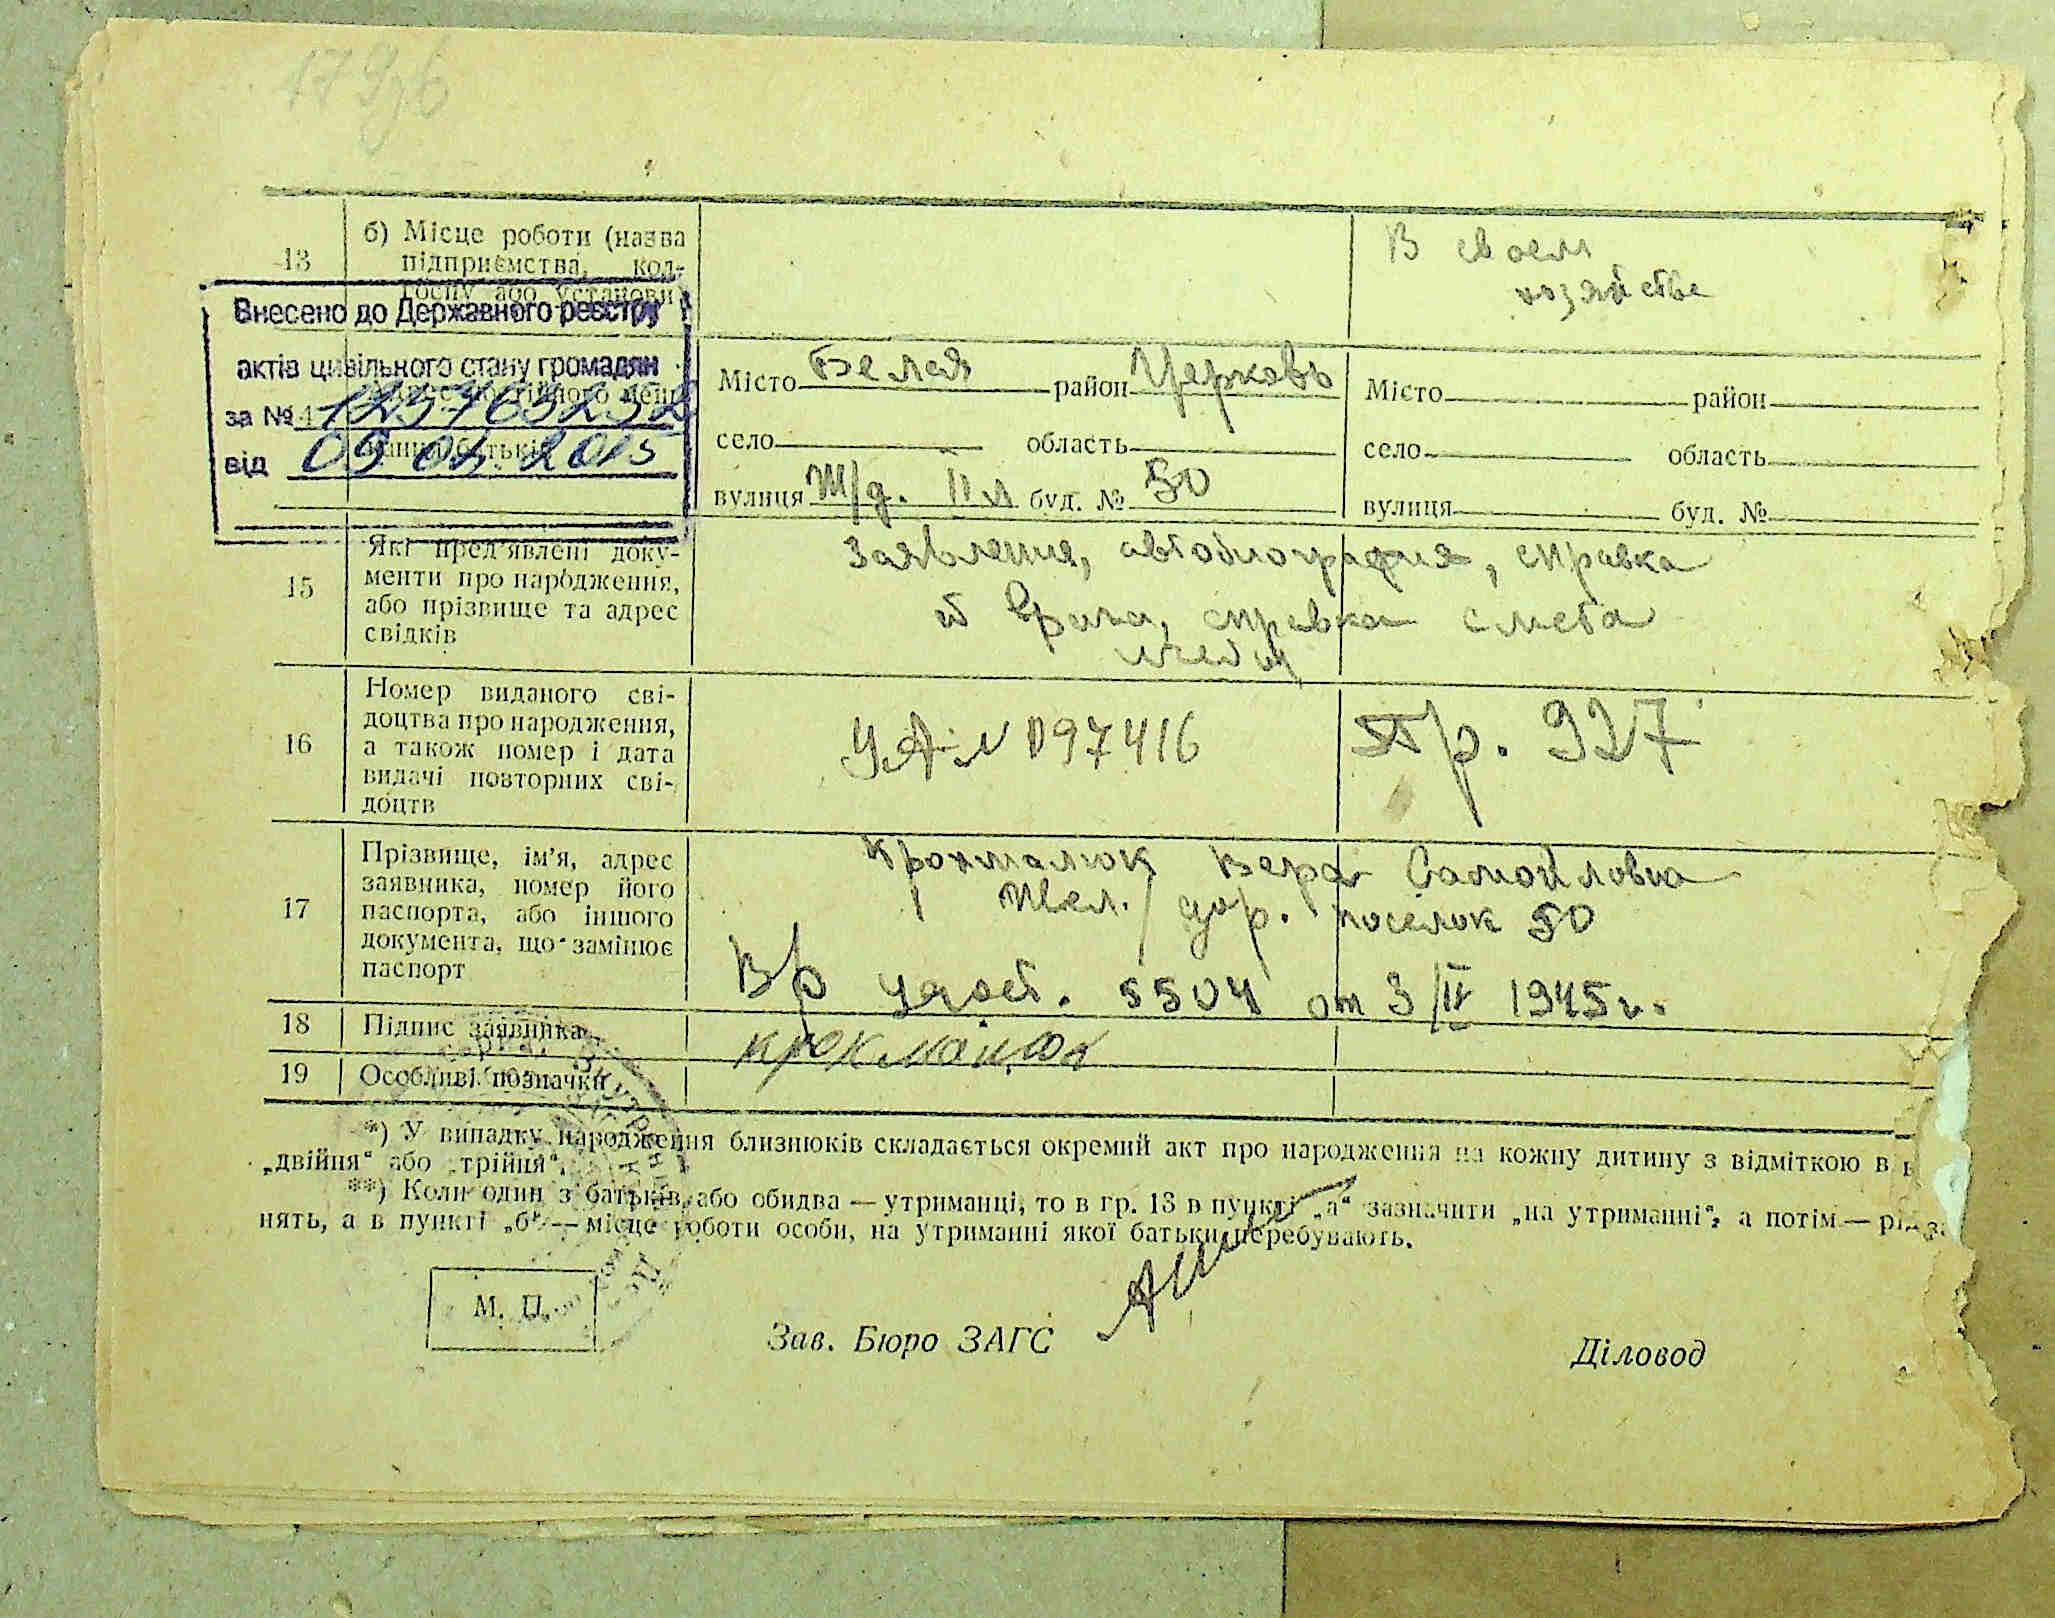 13
б) Місце роботи (назва
підприємства, кол-
госпу або установи)
В своем
хозяйстве
Внесено до Державного реєстру
актів цивільного стану громадян
за №
від
Місто Белая район Церковь
село область
вулиця Ж/д. буд. № 50
Місто район
село область
вулиця буд. №
15
Які пред'явлені доку-
менти про народження,
або прізвище та адрес
свідків
Заявления, автобиография, справка
врача, справка с места
16
Номер виданого сві-
доцтва про народження,
а також номер і дата
видачі повторних сві-
доцтв
УА № 097416
Пр. 927
17
Прізвище, ім'я, адрес
заявника, номер його
паспорта, або іншого
документа, що замінює
паспорт
Крохмалюк Вера Самойловна
Жел. дор. поселок 50
Вр удост. 5504 от 3/IV 1945г.
18
Підпис заявника
19
Особливі позначки
*) У випадку народження близнюків складається окремий акт про народження на кожну дитину з відміткою в
„двійня“ або „трійня“.
**) Коли один з батьків, або обидва — утриманці, то в гр. 13 в пункті „а“ зазначити „на утриманні“, а потім —
нять, а в пункті „б“ — місце роботи особи, на утриманні якої батьки перебувають.
М. П.
Зав. Бюро ЗАГС
Діловод